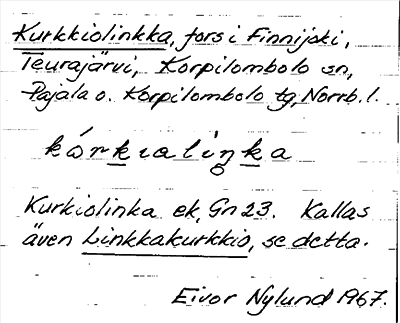 Kurkkiolinkka, fors i Finnijoki,
Teurajärvi, Korpilombolo sn,
Pajala o. Korpilombolo tg, Norrb. l.
kórkıalíŋka
Kurkiolinka ek, Gn 23. Kallas
även Linkkakurkkio, se detta.
Eivor Nylund 1967.